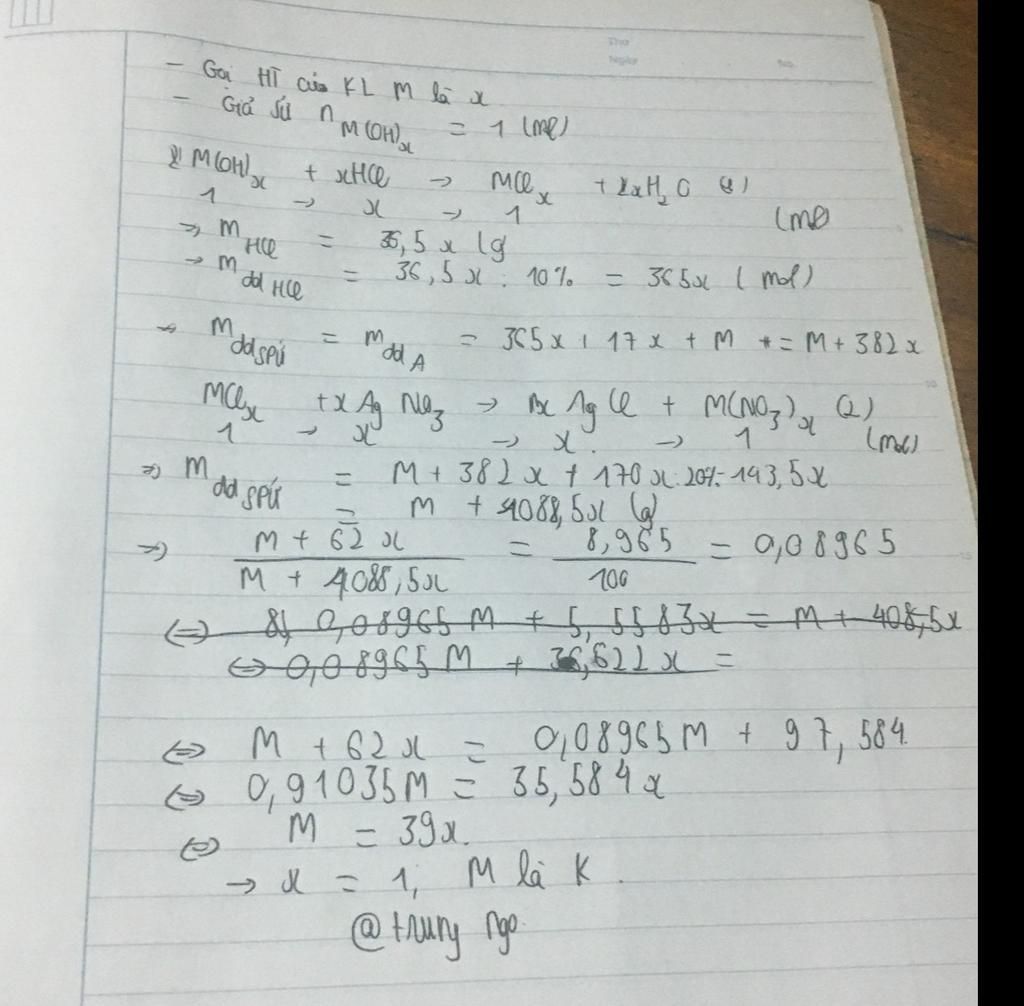 Thứ
Ngày No.
- Gọi HT của KL M là x
- Giả sử n M(OH)x = 1 (mol)
M(OH)x + xHCl → MClx + xH2O (1)
1 → x → 1 (mol)
=> mHCl = 36,5x (g
→ mdd HCl = 36,5x : 10% = 365x (mol)
→ mdd SPỨ = mdd A = 365x + 17x + M = M + 382x
MClx + xAgNO3 → xAgCl + M(NO3)x (2)
1 → x → x → 1 (mol)
=> mdd SPỨ = M + 382x + 170x:20% - 143,5x
= M + 1088,5x (g)
=> (M + 62x)/(M + 1088,5x) = 8,965/100 = 0,08965
<=> 0,08965M + 5,5583x = M + 408,5x
<=> 0,08965M + 36,622x =
<=> M + 62x = 0,08965M + 97,584
<=> 0,91035M = 35,584x
<=> M = 39x.
→ x = 1, M là K.
@trung ngo